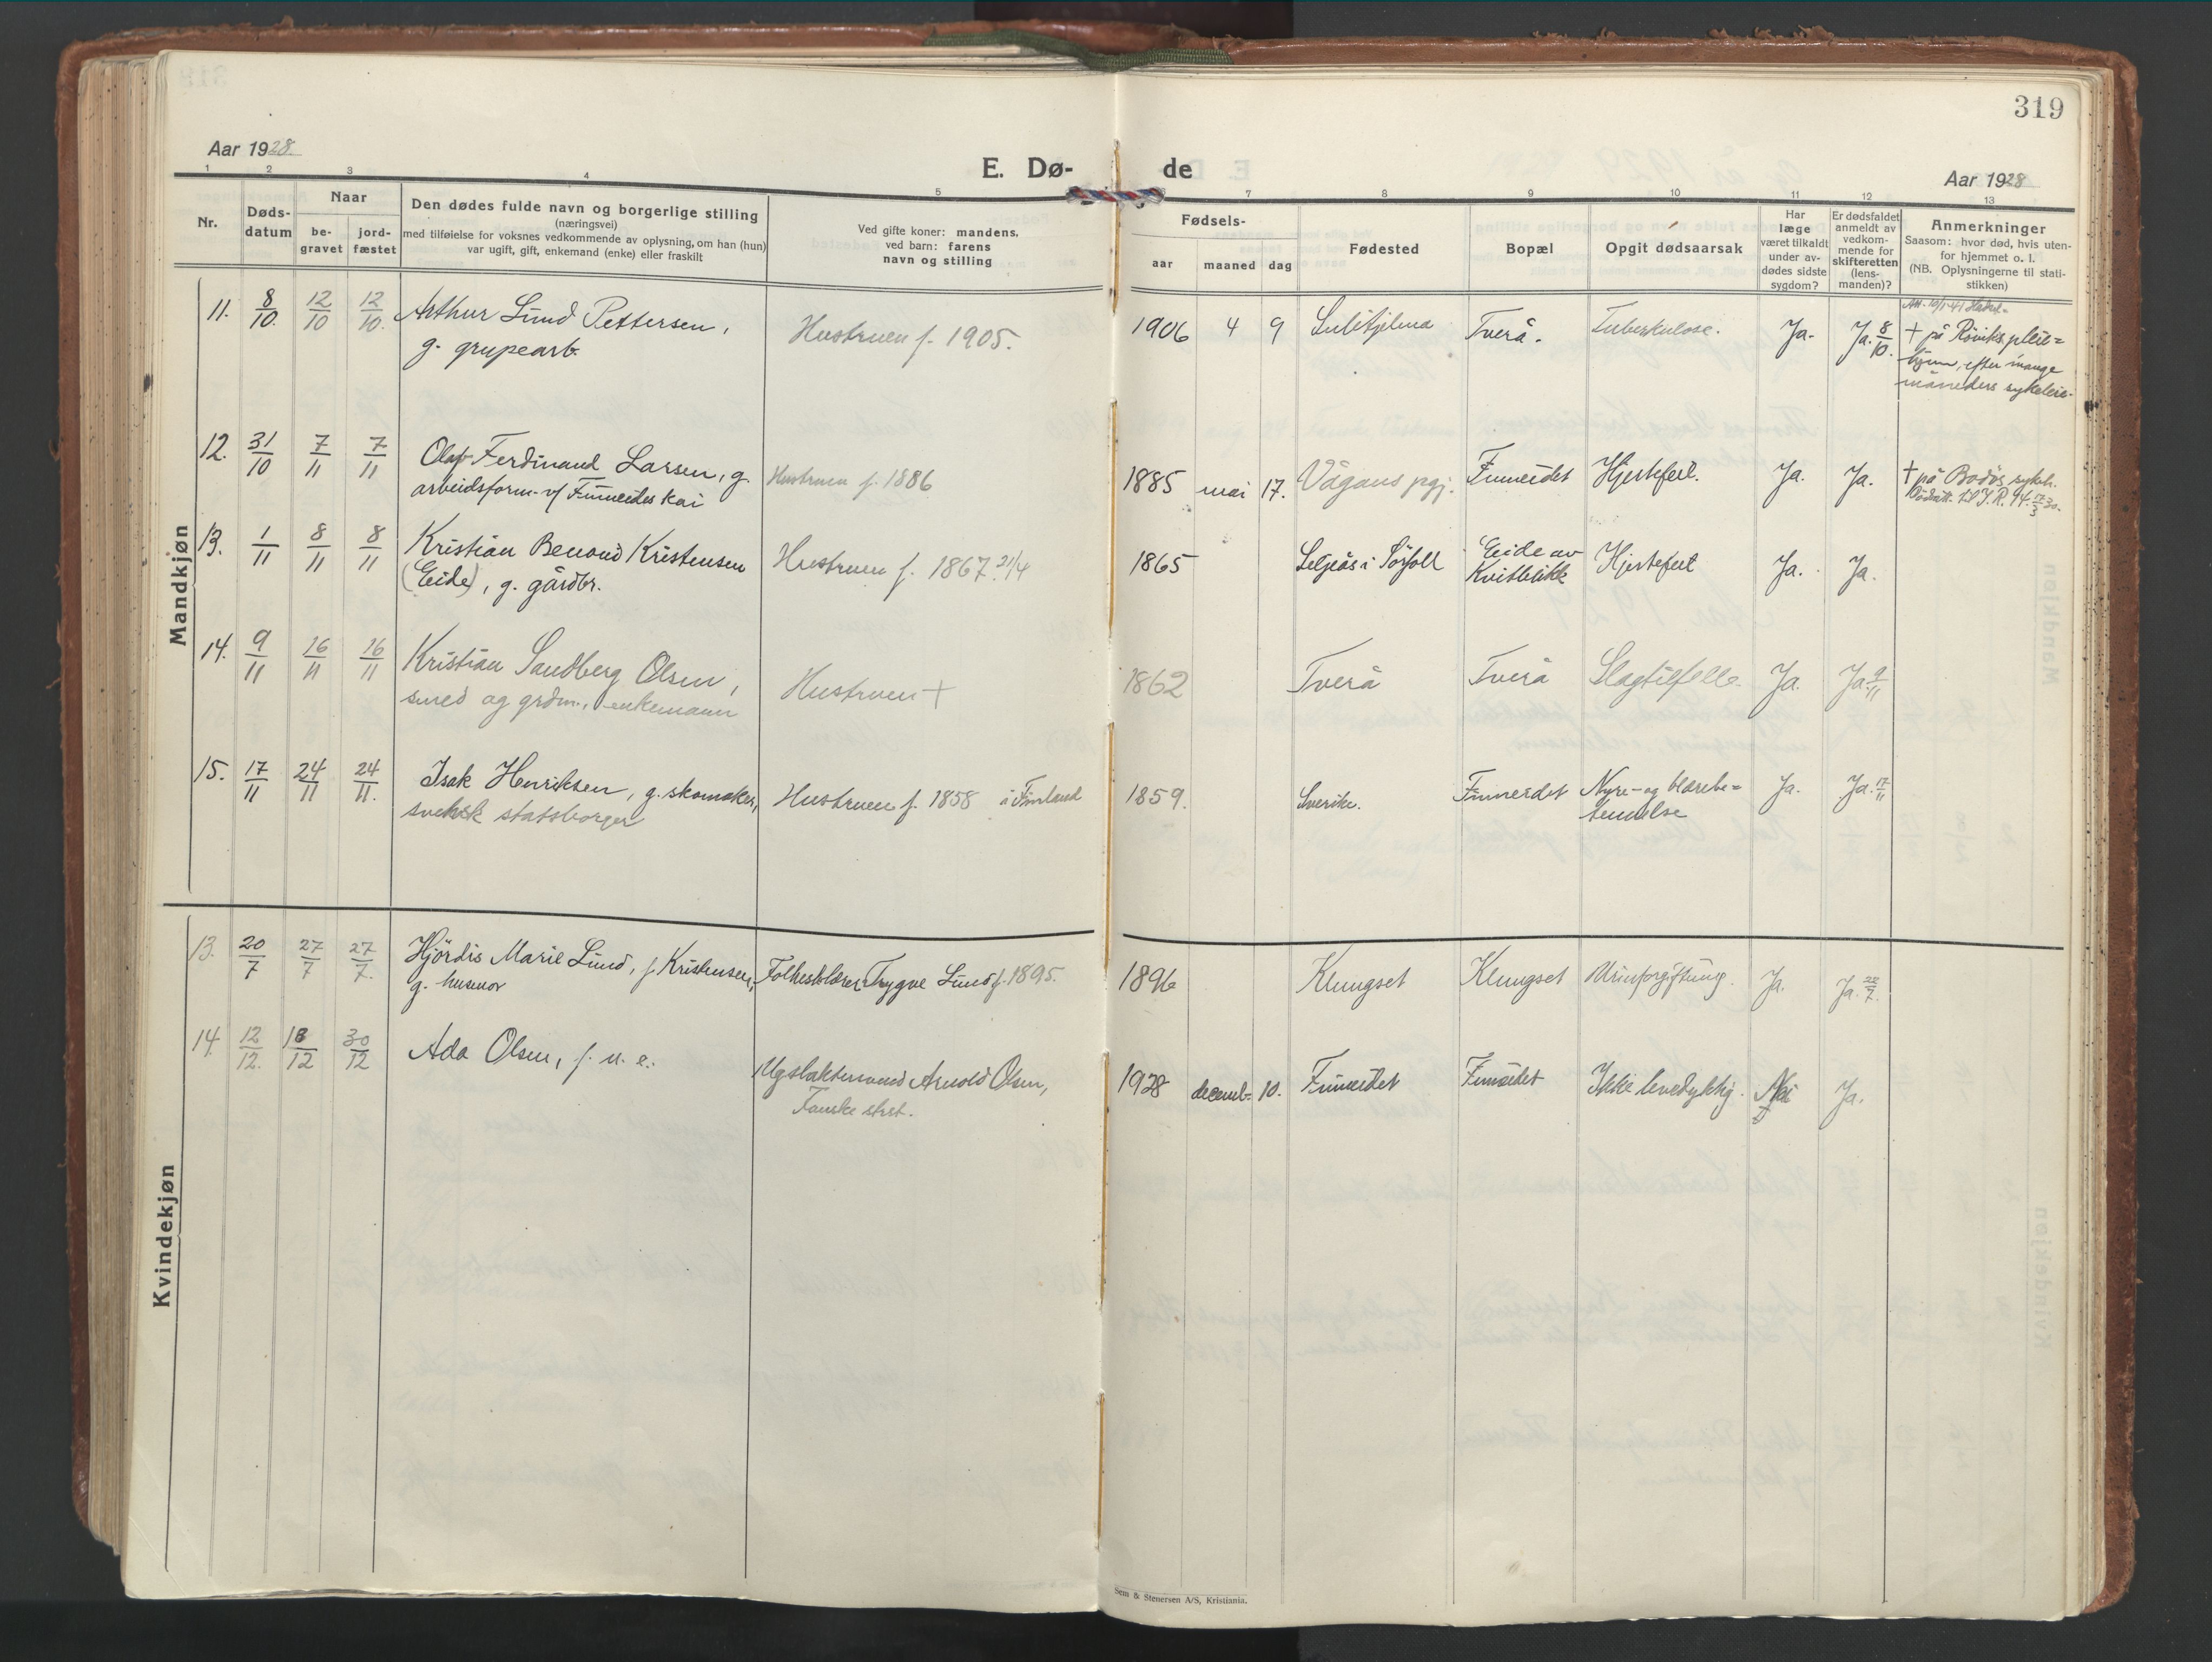 319
Aar 1928.
E. Dø-
de
Aar 1928
1 2 3 4 5 7 8 9 10 11 12 13
Nr.
Døds-
datum
Naar
be-
gravet
jord-
fæstet
Den dødes fulde navn og borgerlige stilling
(næringsvei)
med tilføielse for voksnes vedkommende av oplysning, om han (hun)
var ugift, gift, enkemand (enke) eller fraskilt
Ved gifte koner: mandens,
ved barn: farens
navn og stilling
Fødsels-
aar maaned dag
Fødested
Bopæl
Opgit dødsaarsak
Har
læge
været tilkaldt
under av-
dødes sidste
sygdom?
Er dødsfaldet
anmeldt av
vedkom-
mende for
skifteretten
(lens-
manden)?
Anmerkninger
Saasom: hvor død, hvis uten-
for hjemmet o. l.
(NB. Oplysningerne til stati-
stikken)
Mandkjøn
11. 8/10. 12/10 12/10. Arthur Lund Pettersen, Hustruen f. 1905. 1906 4 9 Sulitjelma Tverå. Tuberkulose. Ja. Ja. 8/10.
g. grupearb.
† på Røsviks pleie=
hjem, efter mange
måneders sykeleie.
12. 31/10 7/11 7/11 Olaf Ferdinand Larsen, g. Hustruen f. 1886 1885 mai 17. Vågans pgj. Finneidet Hjertefeil. Ja. Ja. † på Bodøs sykeh.
arbeidsform. v/ Finneides kai
13. 1/11 8/11 8/11 Kristian Benoni Kristensen Hustruen f. 1867. 21/4 1865 Seljeås i Sørfoll Eide av Hjertefeil Ja. Ja.
(Eide), g. gårdbr. Kvitblikk
14. 9/11 16/11 16/11 Kristian Sandberg Olsen, Hustruen † 1862 Tverå Tverå Slagtilfelle. Ja. Ja. 9/11
smed og grdm., enkemann
15. 17/11 24/11 24/11. Isak Henriksen, g. skomaker, Hustruen f. 1858 i Finland 1859. Sverike. Finneidet Nyre- og blærebe= Ja. Ja. 17/11
svensk statsborger tennelse
Kvindekjøn
13. 20/7 27/7 27/7. Hjördis Marie Lund, f. Kristensen, Folkeskolelærer Trygve Lund f. 1895. 1896 Klungset Klungset Urinforgiftning. Ja. Ja. 22/7.
g. husmor
14. 12/12. 18/12 30/12 Ada Olsen, f. u. e. Arnold Olsen, 1928 decemb= 10. Finneidet Finneidet Ikke levedyktig. Nei Ja.
Fauske st.
Sem & Stenersen A/S, Kristiania.